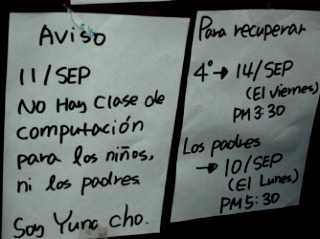 Aviso
11/SEP
No Hay clase de
computación
para los niños,
ni los padres
Soy Yuna cho.
Para recuperar
4° → 14/SEP
(El viernes)
PM 3:30
Los padres
→ 10/SEP
(El Lunes)
PM 5:30